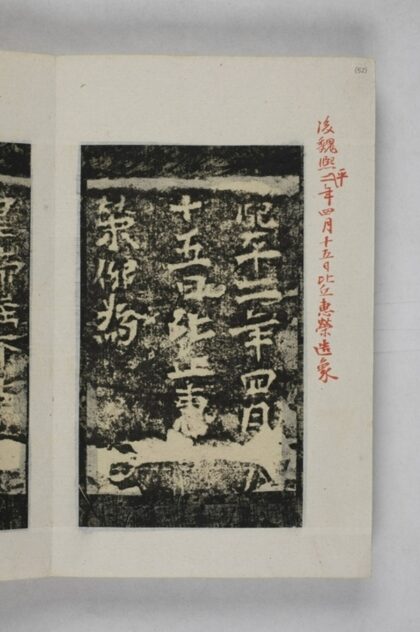 (52)
後魏熙平二年四月十五日比丘惠榮造象
熙平二年四月
十五日比丘惠
榮仰為